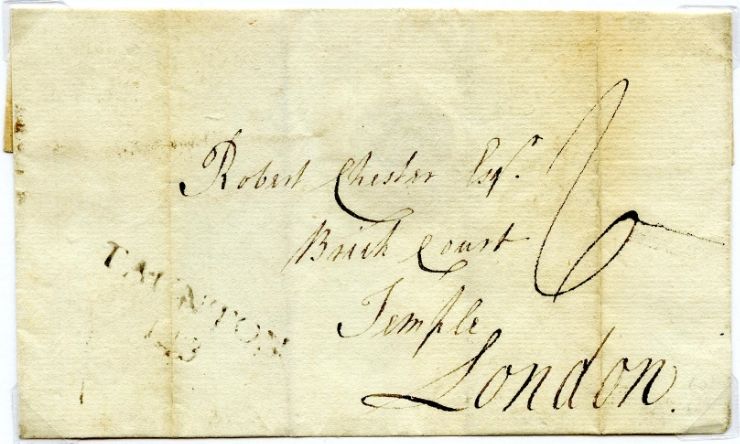 Robert Chester Esqr.
6
Brick Court
Temple
London.
TAUNTON